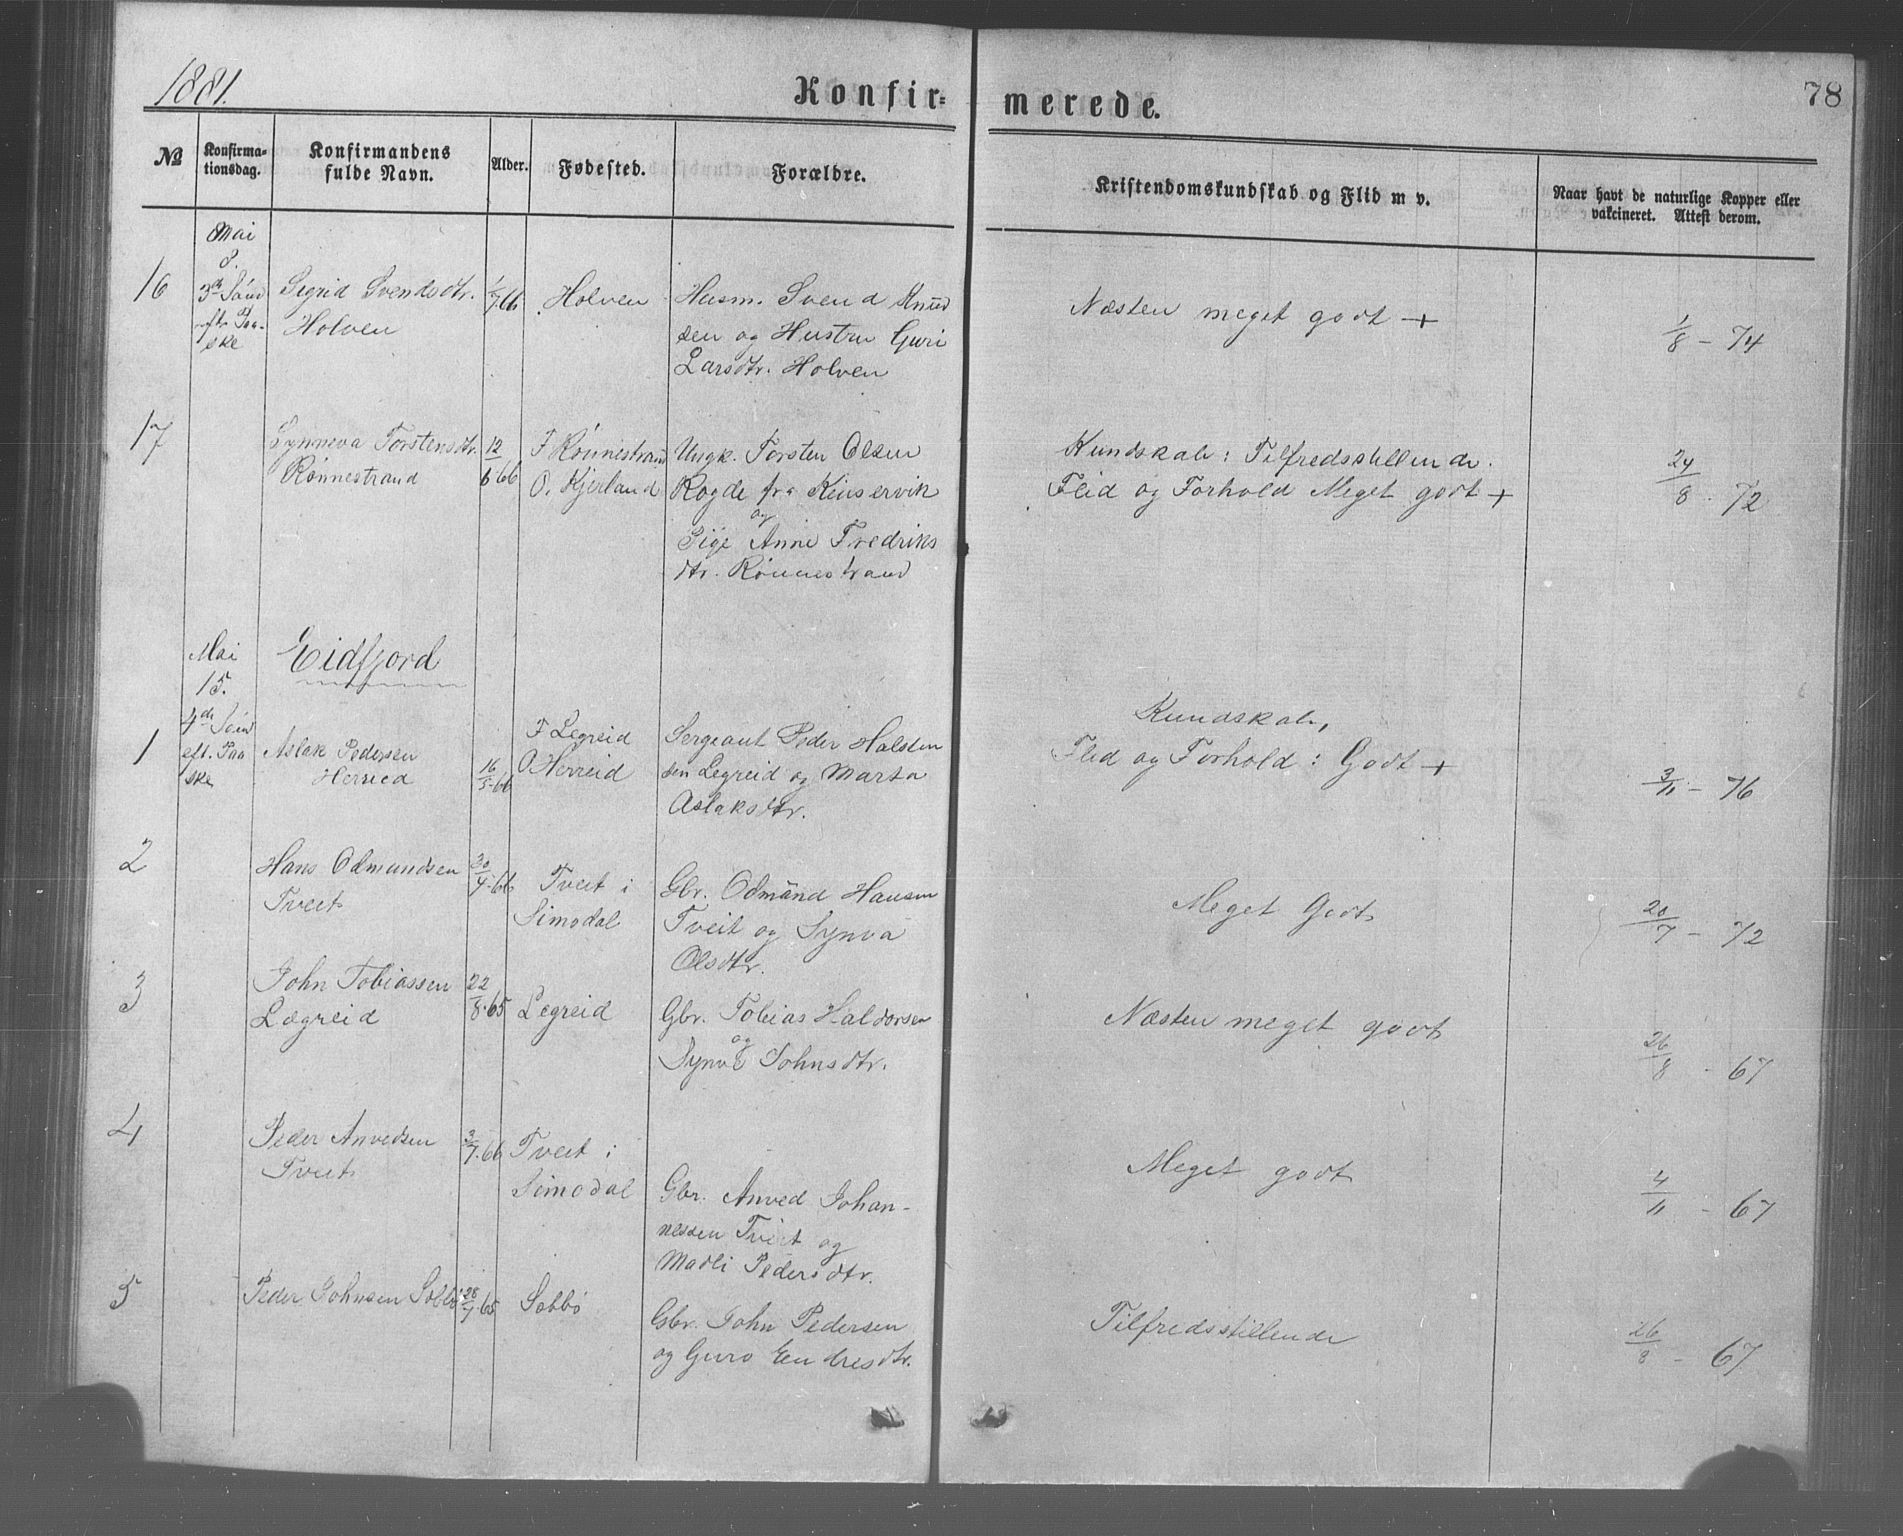 1881.
Konfir=
merede.
78
№
Konfirma-
tionsdag.
Konfirmandens
fulde Navn.
Alder.
Fødested.
Forældre.
Kristendomskundskab og Flid m v.
Naar havt de naturlige Kopper eller
vakcineret. Attest derom.
16
Mai
8.
3de Sönd
eft. Paa-
ske
Sigrid Svendsdtr.
Holven
1/7 66
Holven
Husm. Svend Knud
sen og Hustru Guri
Larsdtr. Holven
Næsten meget godt +
1/8 - 74
17
Synneva Torstensdtr.
Rönnestrand
12/6 66
F Rönnestrand
O. Kjerland
Ungk. Torsten Olsen
Rogde fra Kinservik
og
Pige Anne Fredriks
dtr. Rönnestrand
Kundskab: Tilfredsstillende.
Flid og Forhold Meget godt +
24/8 - 72
Mai
15.
4de Sönd
eft. Paa
ske
Eidfjord
1
Aslak Pedersen
Herreid
16/5 66
F Legreid
O Herreid
Sergeant Peder Halsten
sen Legreid og Marta
Aslaksdtr.
Kundskab,
Flid og Forhold: Godt +
3/11 - 76
2
Hans Odmundsen
Tveit
30/4 66
Tveit i
Simodal
Gbr. Odmund Hansen
Tveit og Synva
Olsdtr.
Meget Godt
20/7 - 72
3
John Tobiassen
Lægreid
22/8 65
Legreid
Gbr. Tobias Haldorsen
og
Synva Johnsdtr.
Næsten meget godt
26/8 - 67
4
Peder Anvedsen
Tveit
3/7 66
Tveit i
Simodal
Gbr. Anved Johan-
nessen Tveit og
Madli Pedersdtr.
Meget godt
4/11 - 67
5
Peder Johnsen Sæbbö
28/7 65
Sæbbö
Gbr. John Pedersen
og Guro Endresdtr.
Tilfredsstillende
26/8 - 67